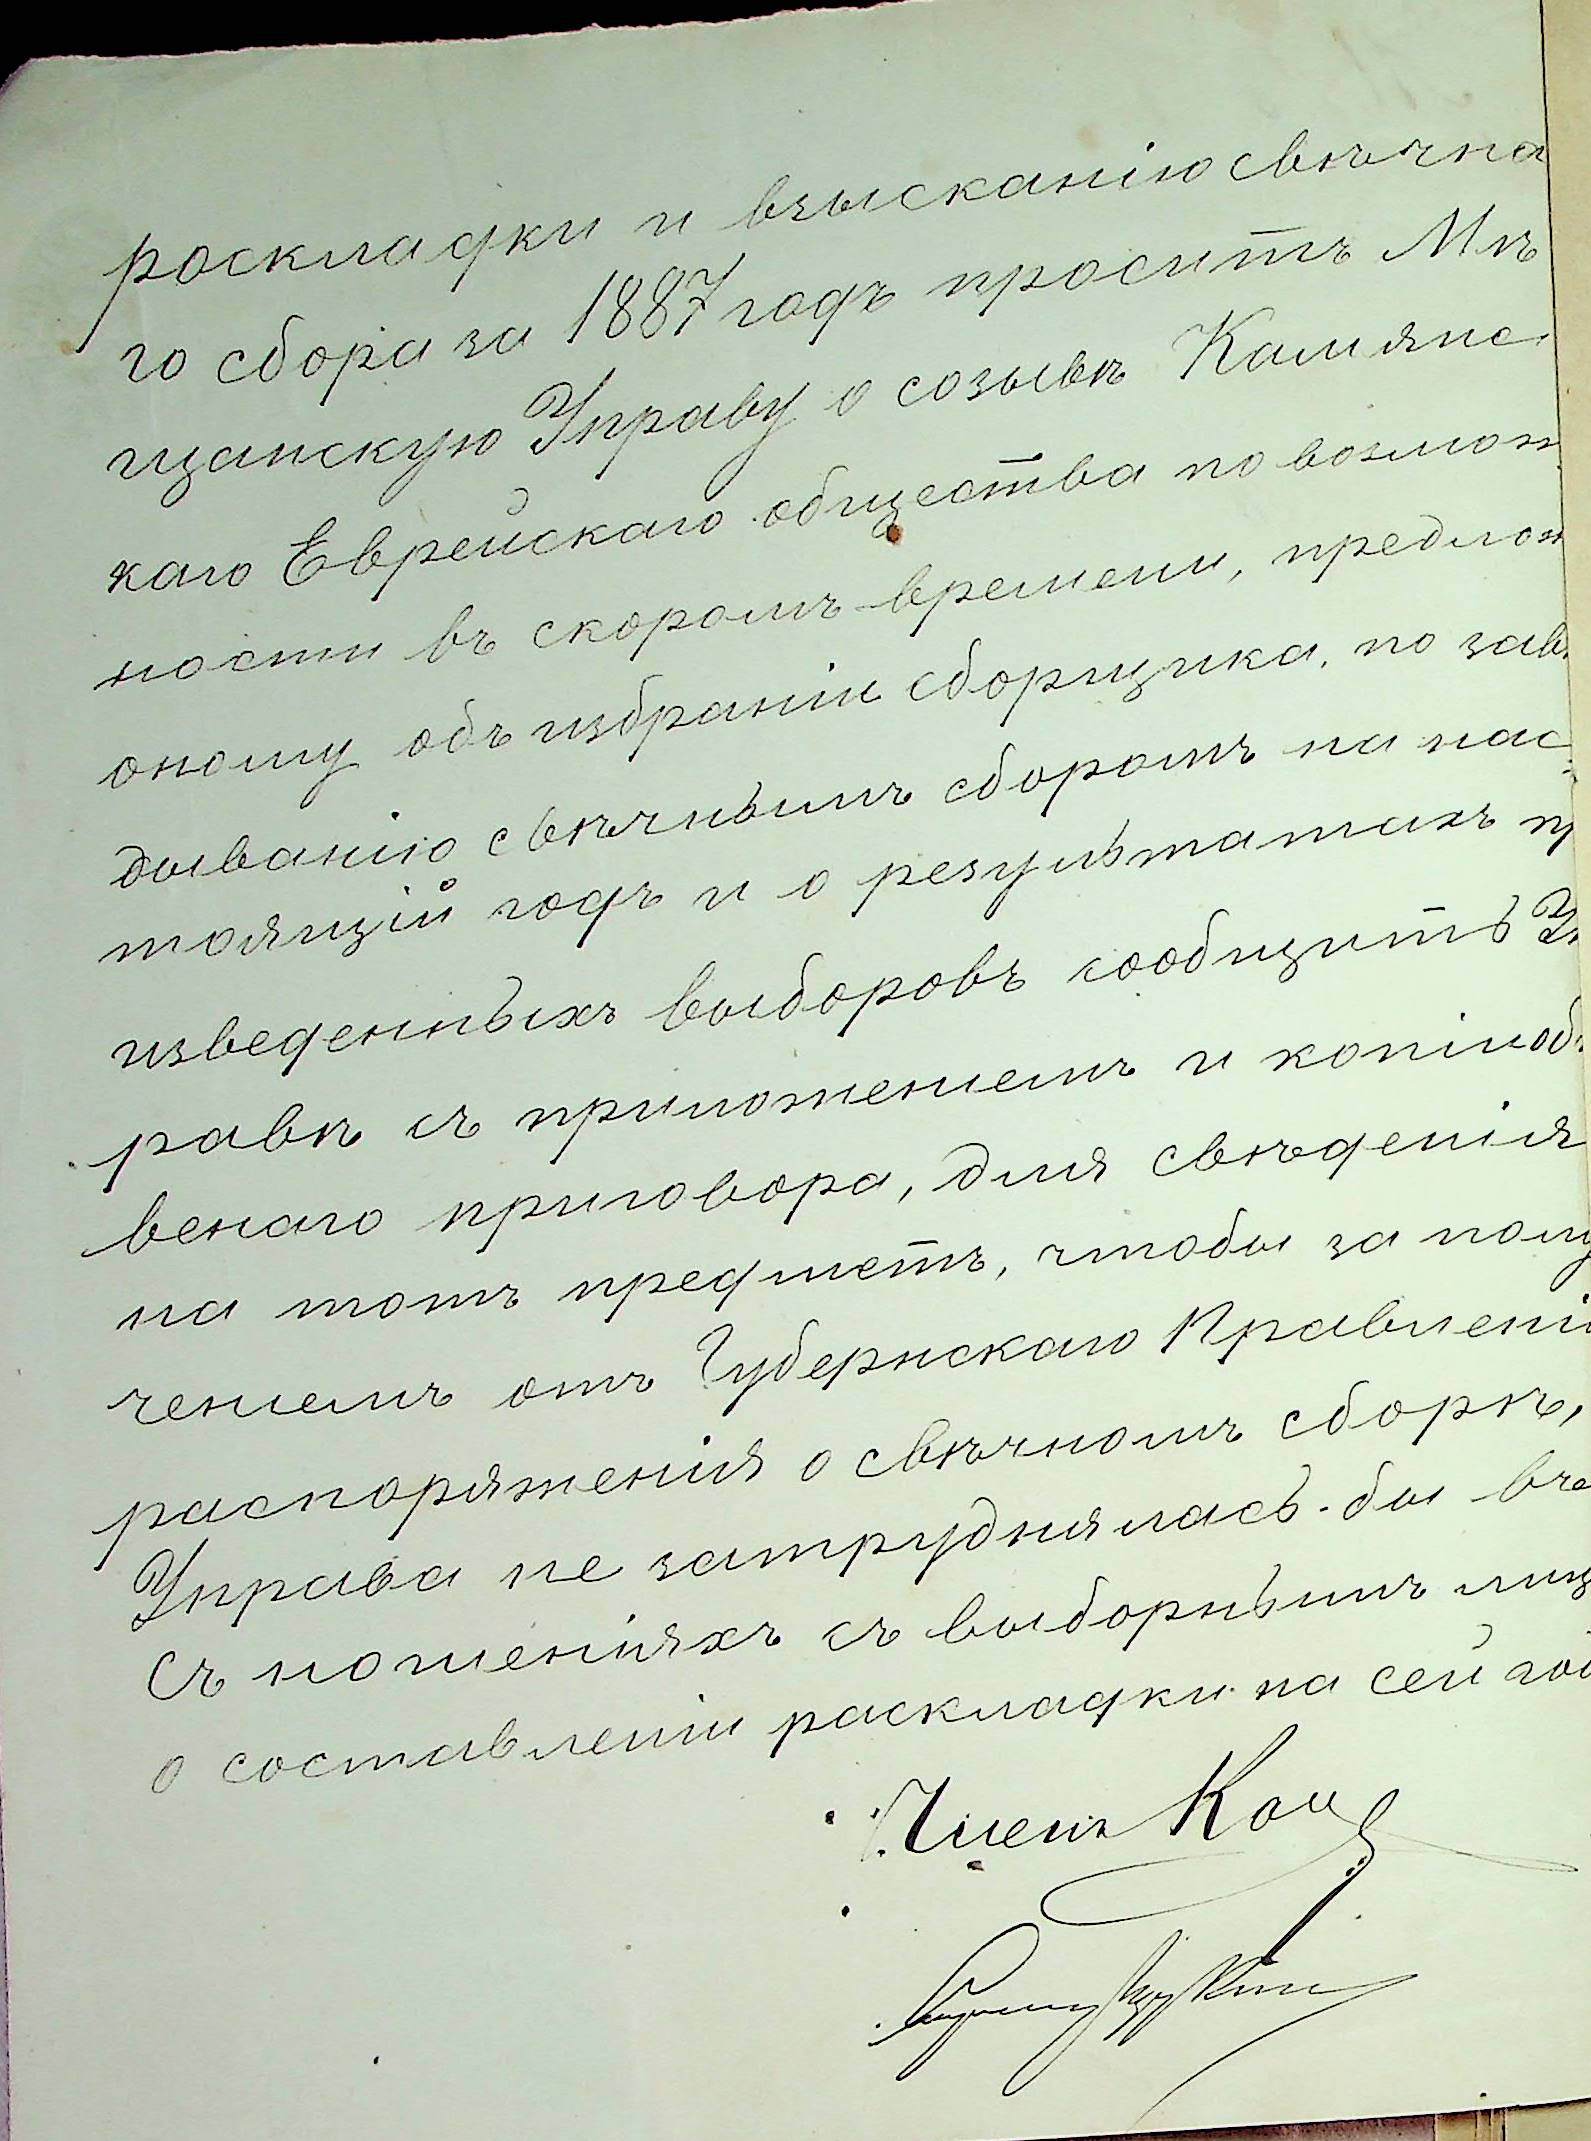 роскладки и взысканію свѣчна
го сбора за 1887 годъ просить Мѣ
щанскую Управу о созывѣ Камянс
каго Еврейскаго общества по возмож
ности въ скоромъ времени, предлож
оному объ избраніи сборщика, по завѣ
дыванію свѣчнымъ сборомъ на нас
тоящій годъ и о результатахъ пр
изведенныхъ выборовъ сообщить Уп
равѣ съ приложеніемъ и копіи об
венаго приговора, для свѣденія
на тотъ предметъ, чтобы за полу
ченіемъ отъ Губернскаго Правлені
распоряженія о свѣчномъ сборѣ,
Управа не затруднялась-бы въ
съ ношеніяхъ съ выборнымъ лиц
о составленіи раскладки на сей год
Членъ